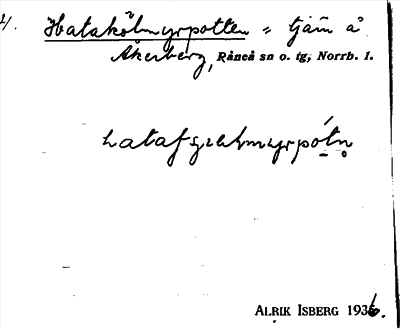 Hatakölmyrpotten = tjärn å
Åkerberg, Råneå sn o. tg, Norrb. l.
ALRIK ISBERG 1936.